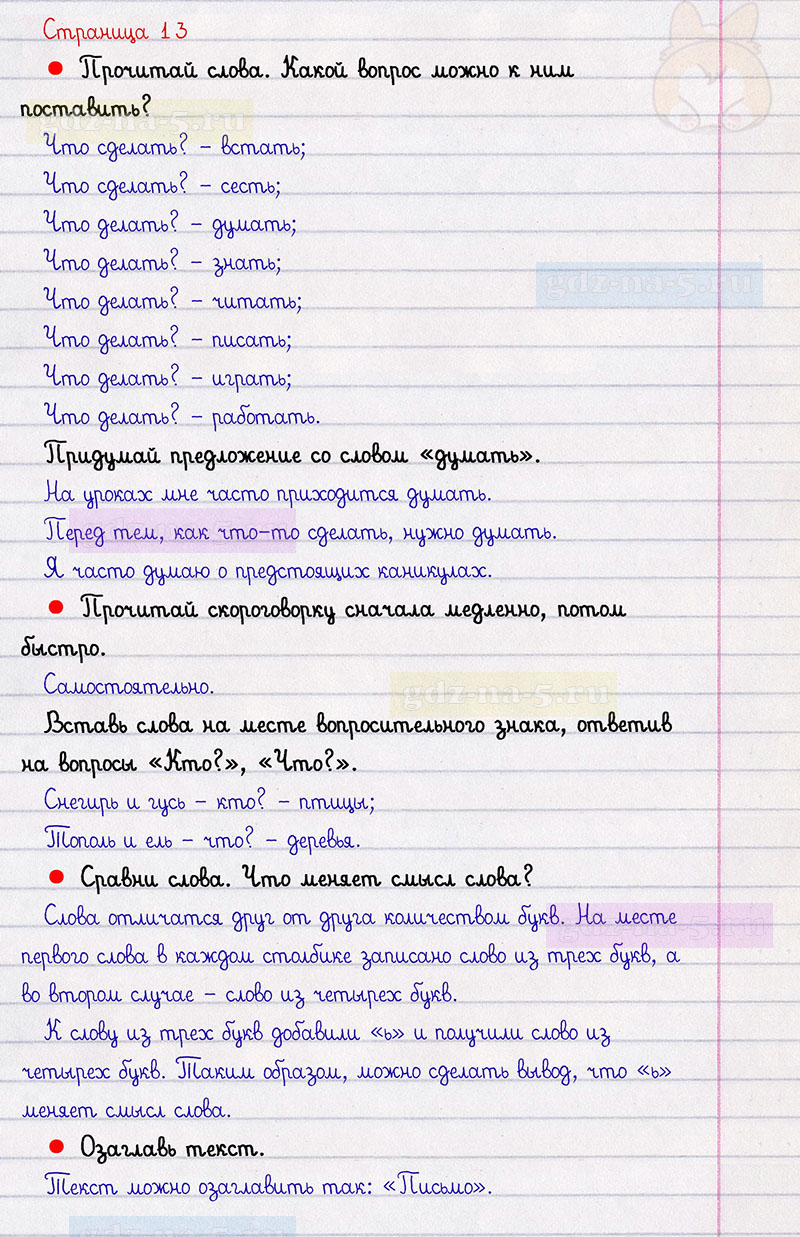 Страница 13
• Прочитай слова. Какой вопрос можно к ним
поставить?
gdz-na-5.ru
Что сделать? – встать;
Что сделать? – сесть;
Что делать? – думать;
Что делать? – знать;
gdz-na-5.ru
Что делать? – читать;
Что делать? – писать;
Что делать? – играть;
Что делать? – работать.
Придумай предложение со словом «думать».
На уроках мне часто приходится думать.
Перед тем, как что-то сделать, нужно думать.
Я часто думаю о предстоящих каникулах.
• Прочитай скороговорку сначала медленно, потом
быстро.
Самостоятельно.
gdz-na-5.ru
Вставь слова на месте вопросительного знака, ответив
на вопросы «Кто?», «Что?».
Снегирь и гусь – кто? – птицы;
Тополь и ель – что? – деревья.
• Сравни слова. Что меняет смысл слова?
Слова отличатся друг от друга количеством букв. На месте
gdz-na-5.ru
первого слова в каждом столбике записано слово из трех букв, а
во втором случае – слово из четырех букв.
К слову из трех букв добавили «ь» и получили слово из
четырех букв. Таким образом, можно сделать вывод, что «ь»
меняет смысл слова.
• Озаглавь текст.
Текст можно озаглавить так: «Письмо».